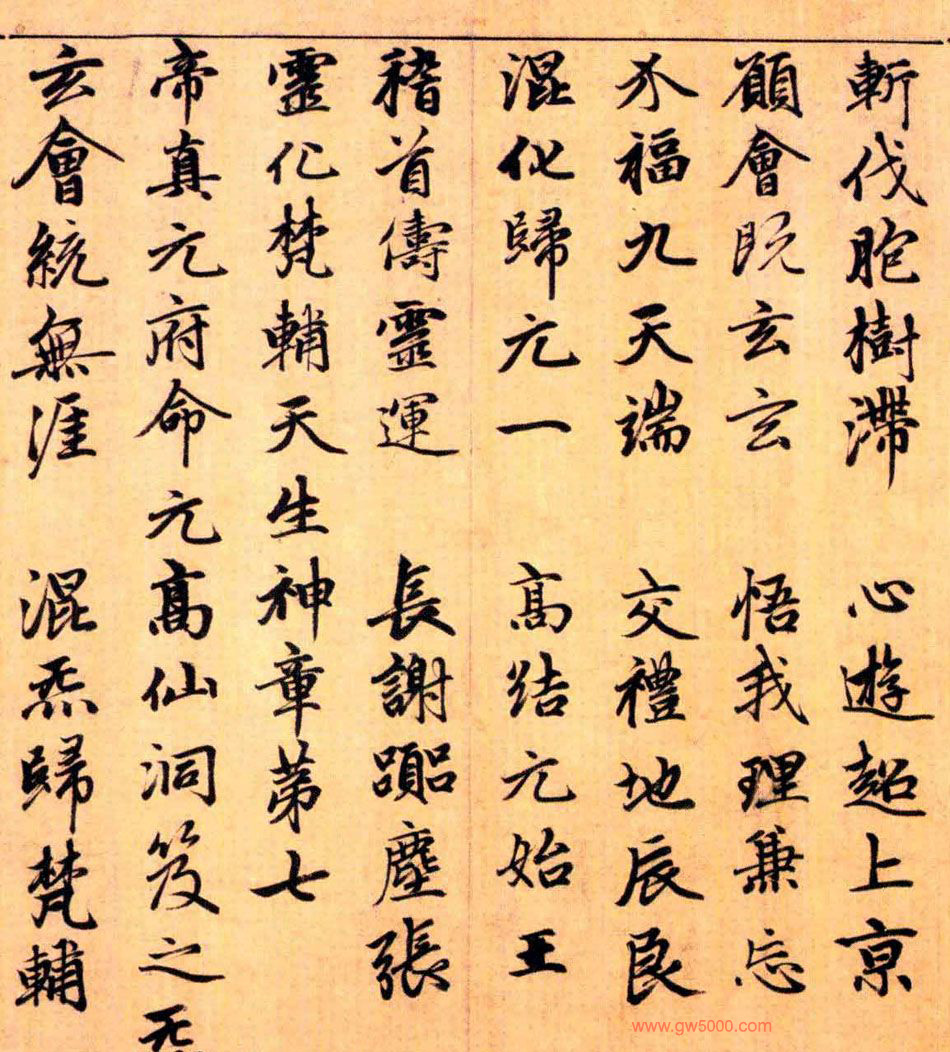 斬伐胞樹滯 心遊超上京
願會既玄玄 悟我理兼忘
介福九天端 交禮地辰良
混化歸元一 高結元始王
稽首儔靈運 長謝囂塵張
靈化梵輔天生神章第七
帝真元府命元高仙洞笈之炁
玄會統無涯 混炁歸梵輔
www.gw5000.com